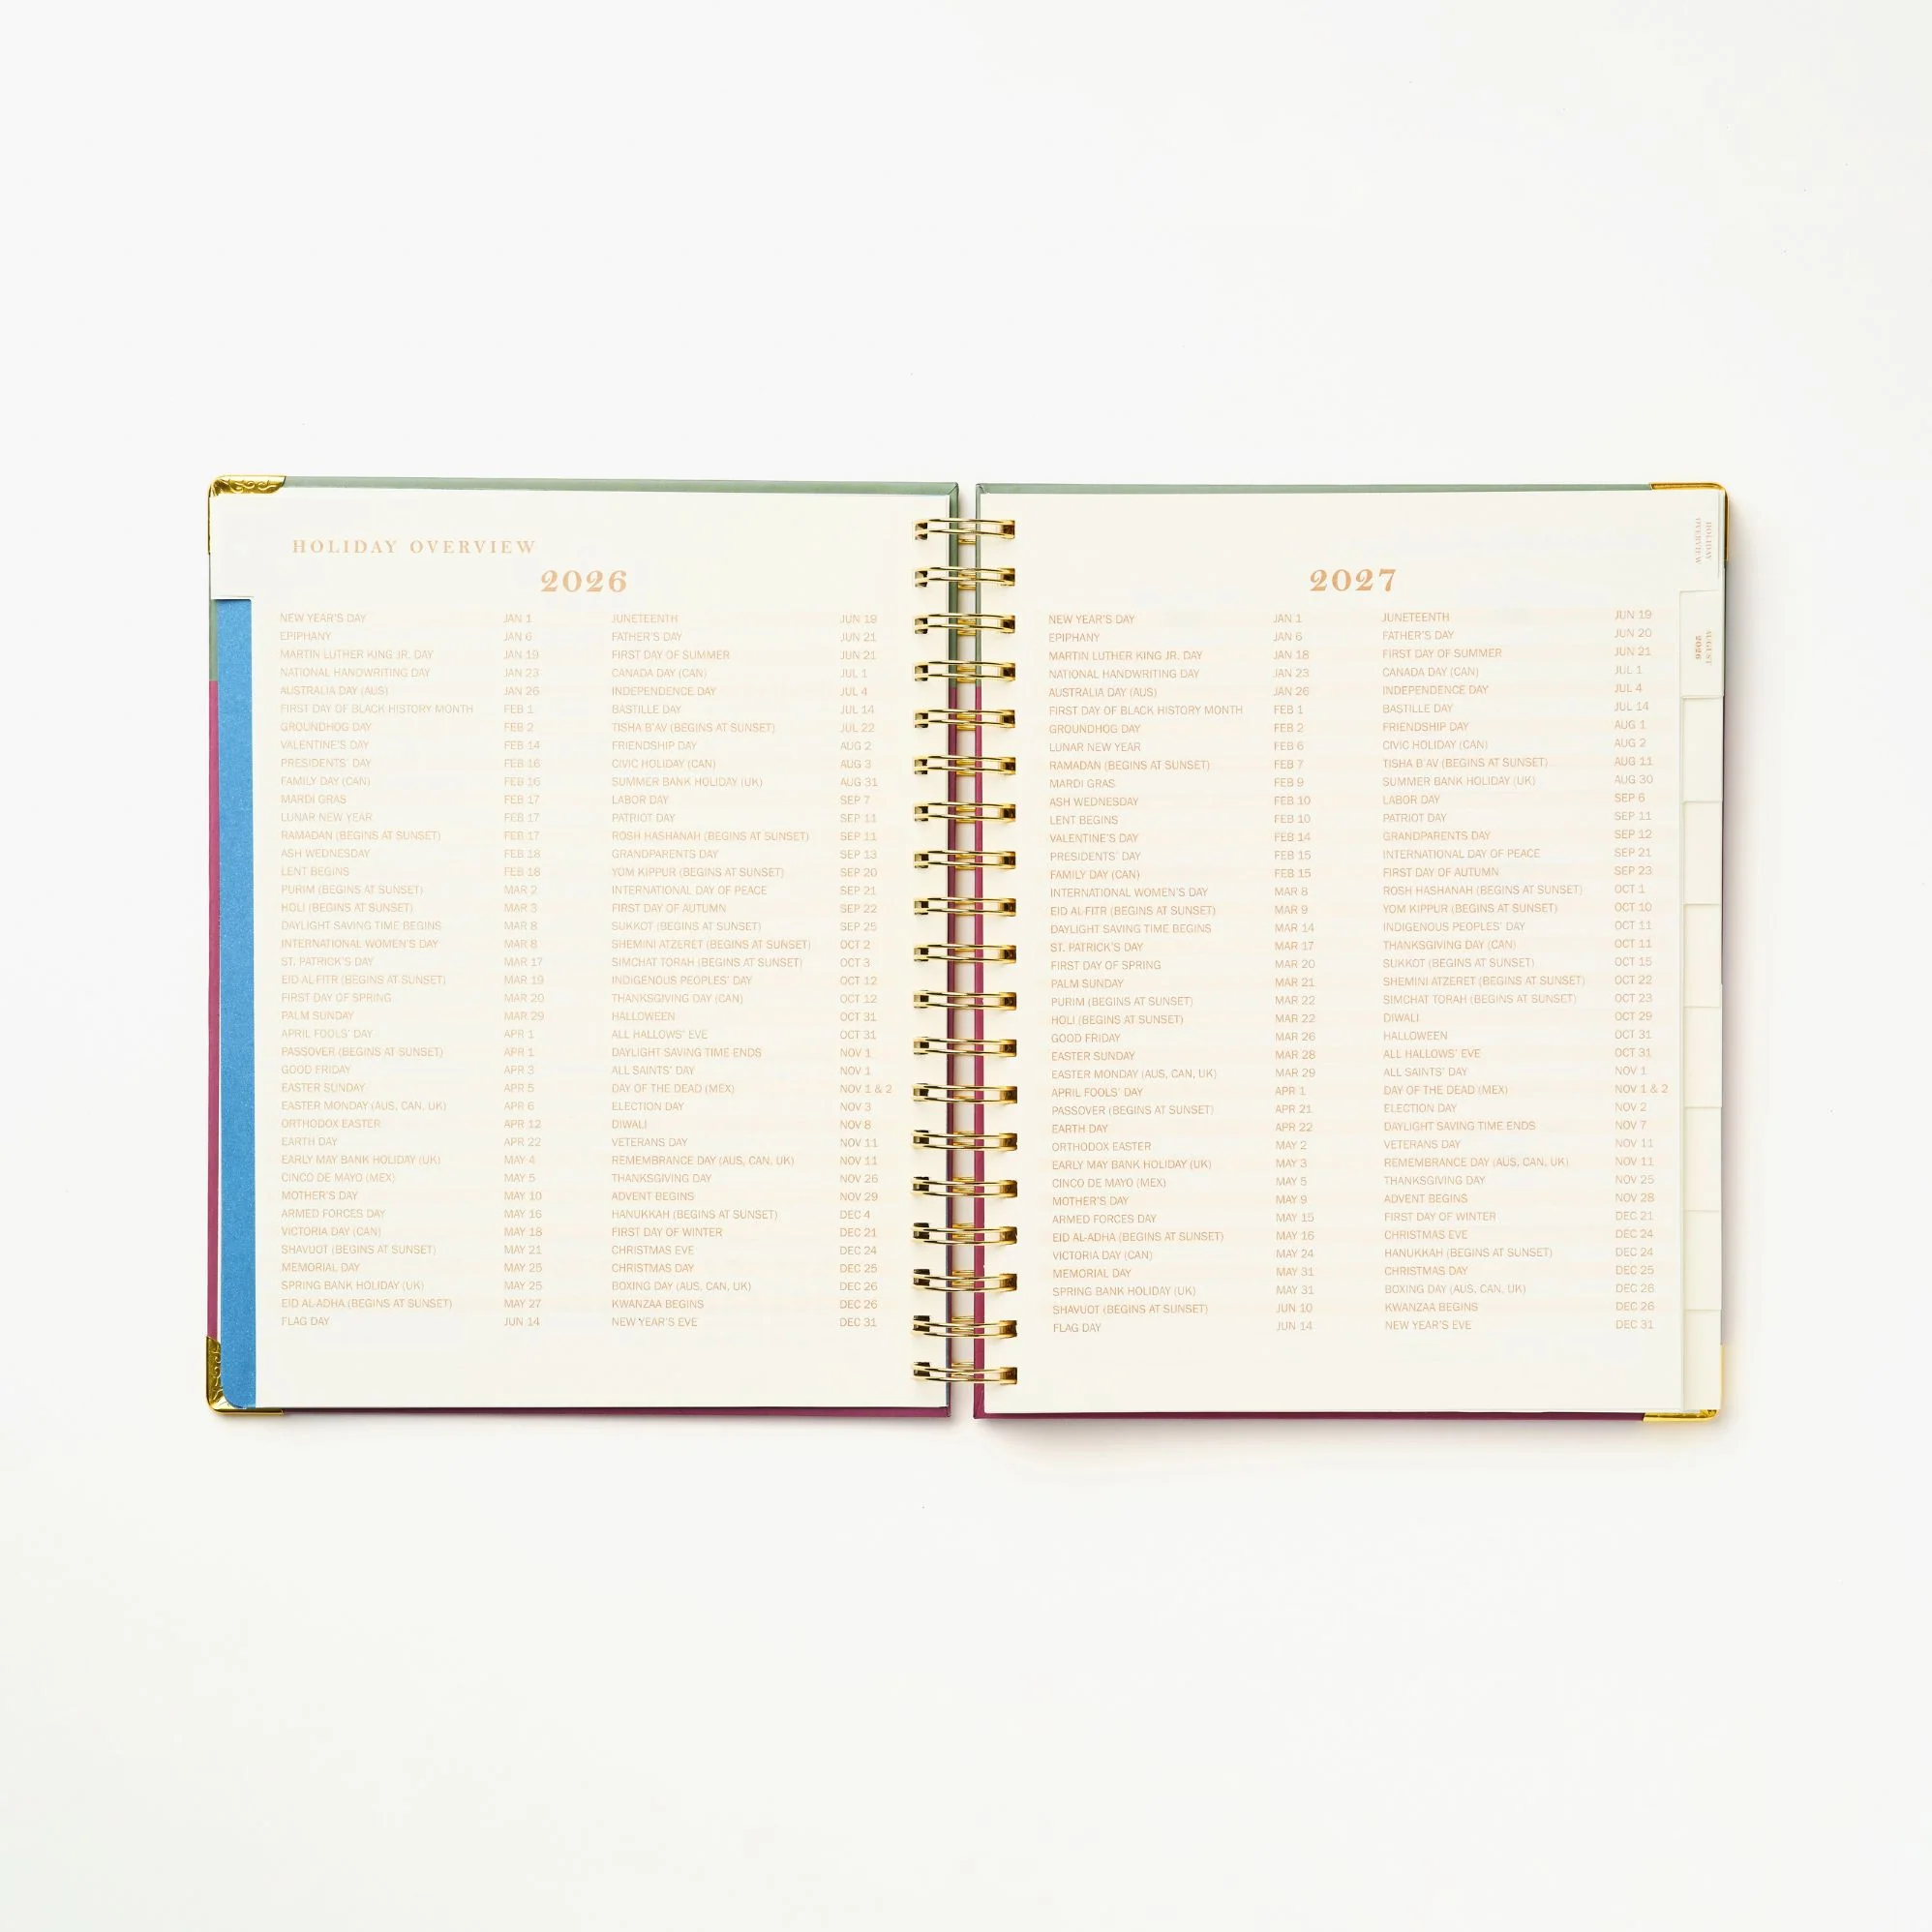 HOLIDAY OVERVIEW
2026
NEW YEAR'S DAY JAN 1
EPIPHANY JAN 6
MARTIN LUTHER KING JR. DAY JAN 19
NATIONAL HANDWRITING DAY JAN 23
AUSTRALIA DAY (AUS) JAN 26
FIRST DAY OF BLACK HISTORY MONTH FEB 1
GROUNDHOG DAY FEB 2
VALENTINE'S DAY FEB 14
PRESIDENTS' DAY FEB 16
FAMILY DAY (CAN) FEB 16
MARDI GRAS FEB 17
LUNAR NEW YEAR FEB 17
RAMADAN (BEGINS AT SUNSET) FEB 17
ASH WEDNESDAY FEB 18
LENT BEGINS FEB 18
PURIM (BEGINS AT SUNSET) MAR 2
HOLI (BEGINS AT SUNSET) MAR 3
DAYLIGHT SAVING TIME BEGINS MAR 8
INTERNATIONAL WOMEN'S DAY MAR 8
ST. PATRICK'S DAY MAR 17
EID AL-FITR (BEGINS AT SUNSET) MAR 19
FIRST DAY OF SPRING MAR 20
PALM SUNDAY MAR 29
APRIL FOOLS' DAY APR 1
PASSOVER (BEGINS AT SUNSET) APR 1
GOOD FRIDAY APR 3
EASTER SUNDAY APR 5
EASTER MONDAY (AUS, CAN, UK) APR 6
ORTHODOX EASTER APR 12
EARTH DAY APR 22
EARLY MAY BANK HOLIDAY (UK) MAY 4
CINCO DE MAYO (MEX) MAY 5
MOTHER'S DAY MAY 10
ARMED FORCES DAY MAY 16
VICTORIA DAY (CAN) MAY 18
SHAVUOT (BEGINS AT SUNSET) MAY 21
MEMORIAL DAY MAY 25
SPRING BANK HOLIDAY (UK) MAY 25
EID AL-ADHA (BEGINS AT SUNSET) MAY 27
FLAG DAY JUN 14
JUNETEENTH JUN 19
FATHER'S DAY JUN 21
FIRST DAY OF SUMMER JUN 21
CANADA DAY (CAN) JUL 1
INDEPENDENCE DAY JUL 4
BASTILLE DAY JUL 14
TISHA B'AV (BEGINS AT SUNSET) JUL 22
FRIENDSHIP DAY AUG 2
CIVIC HOLIDAY (CAN) AUG 3
SUMMER BANK HOLIDAY (UK) AUG 31
LABOR DAY SEP 7
PATRIOT DAY SEP 11
ROSH HASHANAH (BEGINS AT SUNSET) SEP 11
GRANDPARENTS DAY SEP 13
YOM KIPPUR (BEGINS AT SUNSET) SEP 20
INTERNATIONAL DAY OF PEACE SEP 21
FIRST DAY OF AUTUMN SEP 22
SUKKOT (BEGINS AT SUNSET) SEP 25
SHEMINI ATZERET (BEGINS AT SUNSET) OCT 2
SIMCHAT TORAH (BEGINS AT SUNSET) OCT 3
INDIGENOUS PEOPLES' DAY OCT 12
THANKSGIVING DAY (CAN) OCT 12
HALLOWEEN OCT 31
ALL HALLOWS' EVE OCT 31
DAYLIGHT SAVING TIME ENDS NOV 1
ALL SAINTS' DAY NOV 1
DAY OF THE DEAD (MEX) NOV 1 & 2
ELECTION DAY NOV 3
DIWALI NOV 8
VETERANS DAY NOV 11
REMEMBRANCE DAY (AUS, CAN, UK) NOV 11
THANKSGIVING DAY NOV 26
ADVENT BEGINS NOV 29
HANUKKAH (BEGINS AT SUNSET) DEC 4
FIRST DAY OF WINTER DEC 21
CHRISTMAS EVE DEC 24
CHRISTMAS DAY DEC 25
BOXING DAY (AUS, CAN, UK) DEC 26
KWANZAA BEGINS DEC 26
NEW YEAR'S EVE DEC 31
2027
NEW YEAR'S DAY JAN 1
EPIPHANY JAN 6
MARTIN LUTHER KING JR. DAY JAN 18
NATIONAL HANDWRITING DAY JAN 23
AUSTRALIA DAY (AUS) JAN 26
FIRST DAY OF BLACK HISTORY MONTH FEB 1
GROUNDHOG DAY FEB 2
LUNAR NEW YEAR FEB 6
RAMADAN (BEGINS AT SUNSET) FEB 7
MARDI GRAS FEB 9
ASH WEDNESDAY FEB 10
LENT BEGINS FEB 10
VALENTINE'S DAY FEB 14
PRESIDENTS' DAY FEB 15
FAMILY DAY (CAN) FEB 15
INTERNATIONAL WOMEN'S DAY MAR 8
EID AL-FITR (BEGINS AT SUNSET) MAR 9
DAYLIGHT SAVING TIME BEGINS MAR 14
ST. PATRICK'S DAY MAR 17
FIRST DAY OF SPRING MAR 20
PALM SUNDAY MAR 21
PURIM (BEGINS AT SUNSET) MAR 22
HOLI (BEGINS AT SUNSET) MAR 22
GOOD FRIDAY MAR 26
EASTER SUNDAY MAR 28
EASTER MONDAY (AUS, CAN, UK) MAR 29
APRIL FOOLS' DAY APR 1
PASSOVER (BEGINS AT SUNSET) APR 21
EARTH DAY APR 22
ORTHODOX EASTER MAY 2
EARLY MAY BANK HOLIDAY (UK) MAY 3
CINCO DE MAYO (MEX) MAY 5
MOTHER'S DAY MAY 9
ARMED FORCES DAY MAY 15
EID AL-ADHA (BEGINS AT SUNSET) MAY 16
VICTORIA DAY (CAN) MAY 24
MEMORIAL DAY MAY 31
SPRING BANK HOLIDAY (UK) MAY 31
SHAVUOT (BEGINS AT SUNSET) JUN 10
FLAG DAY JUN 14
JUNETEENTH JUN 19
FATHER'S DAY JUN 20
FIRST DAY OF SUMMER JUN 21
CANADA DAY (CAN) JUL 1
INDEPENDENCE DAY JUL 4
BASTILLE DAY JUL 14
FRIENDSHIP DAY AUG 1
CIVIC HOLIDAY (CAN) AUG 2
TISHA B'AV (BEGINS AT SUNSET) AUG 11
SUMMER BANK HOLIDAY (UK) AUG 30
LABOR DAY SEP 6
PATRIOT DAY SEP 11
GRANDPARENTS DAY SEP 12
INTERNATIONAL DAY OF PEACE SEP 21
FIRST DAY OF AUTUMN SEP 23
ROSH HASHANAH (BEGINS AT SUNSET) OCT 1
YOM KIPPUR (BEGINS AT SUNSET) OCT 10
INDIGENOUS PEOPLES' DAY OCT 11
THANKSGIVING DAY (CAN) OCT 11
SUKKOT (BEGINS AT SUNSET) OCT 15
SHEMINI ATZERET (BEGINS AT SUNSET) OCT 22
SIMCHAT TORAH (BEGINS AT SUNSET) OCT 23
DIWALI OCT 29
HALLOWEEN OCT 31
ALL HALLOWS' EVE OCT 31
ALL SAINTS' DAY NOV 1
DAY OF THE DEAD (MEX) NOV 1 & 2
ELECTION DAY NOV 2
DAYLIGHT SAVING TIME ENDS NOV 7
VETERANS DAY NOV 11
REMEMBRANCE DAY (AUS, CAN, UK) NOV 11
THANKSGIVING DAY NOV 25
ADVENT BEGINS NOV 28
FIRST DAY OF WINTER DEC 21
CHRISTMAS EVE DEC 24
HANUKKAH (BEGINS AT SUNSET) DEC 24
CHRISTMAS DAY DEC 25
BOXING DAY (AUS, CAN, UK) DEC 26
KWANZAA BEGINS DEC 26
NEW YEAR'S EVE DEC 31
HOLIDAY
OVERVIEW
AUGUST
2026